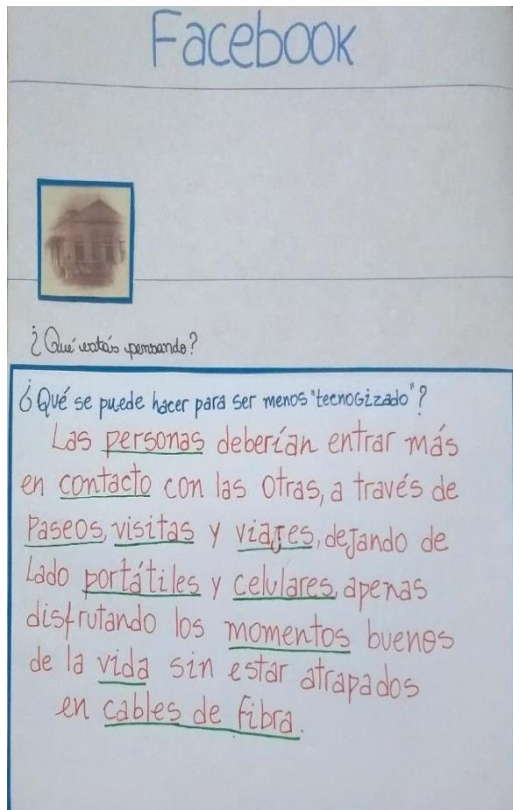 Facebook
¿Qué estás pensando?
¿Qué se puede hacer para ser menos "tecnogizado"?
Las personas deberían entrar más
en contacto con las otras, a través de
Paseos, visitas y viajes, dejando de
lado portátiles y celulares, apenas
disfrutando los momentos buenos
de la vida sin estar atrapados
en cables de fibra.